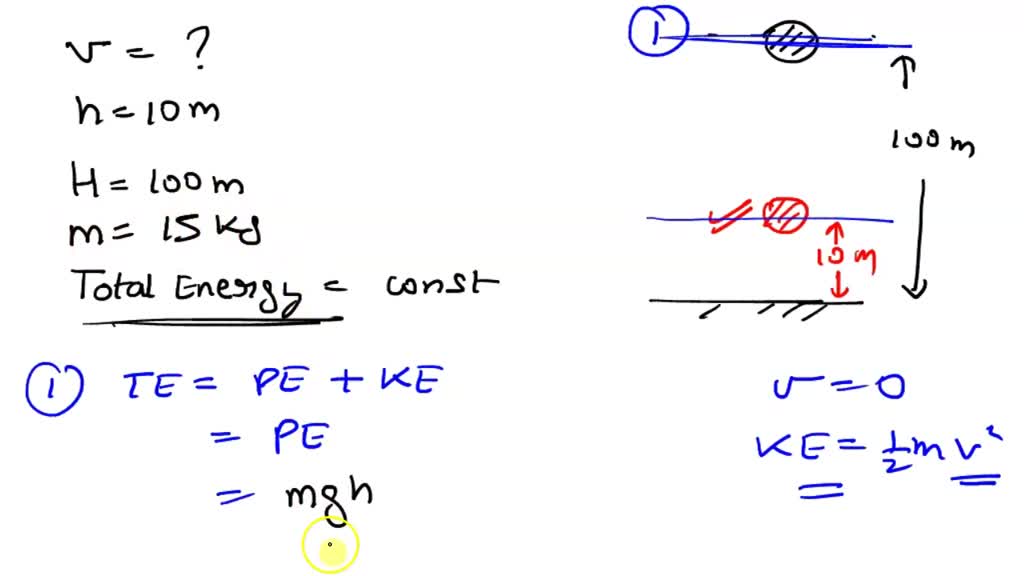 v = ?
h = 10 m
H = 100 m
m = 15 Kg
Total Energy = const
1 TE = PE + KE
= PE
= mgh
1
100 m
10 m
v = 0
KE = 1/2 m v²